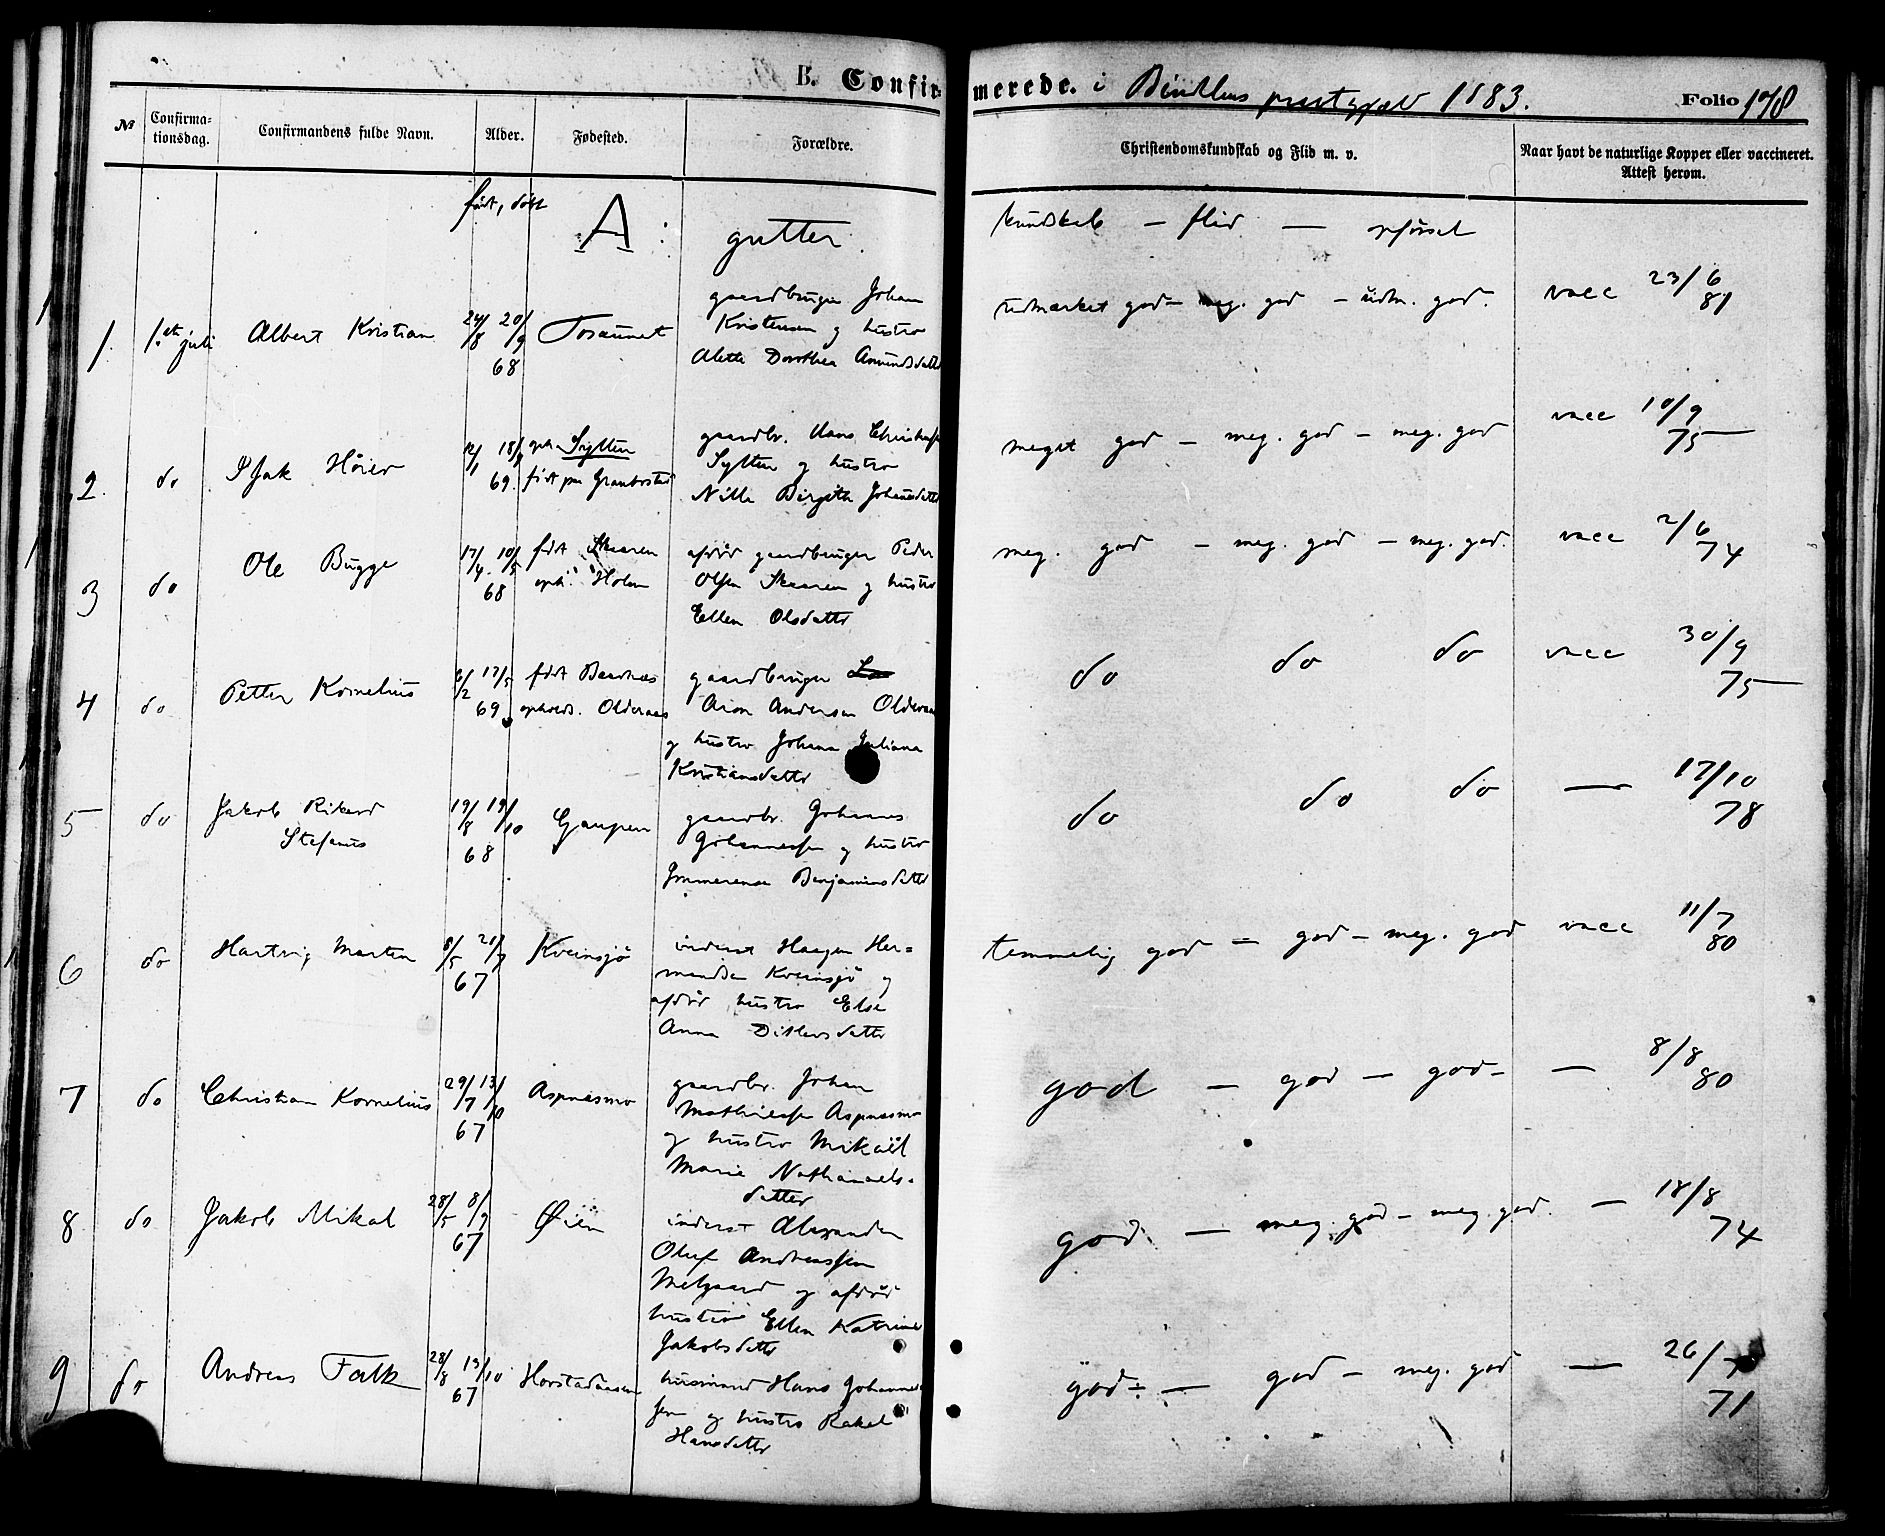 B. Confirmerede. i Bindalens prestegjæld 1883. Folio 178
№ Confirmationsdag. Confirmandens fulde Navn. Alder. Fødested. Forældre. Christendomskundskab og Flid m. v. Naar havt de naturlige Kopper eller vaccineret. Attest herom.
født, døbt A: gutter. kundskab – flid – opførsel
1. 1ste juli Albert Kristian 24/8 20/9 68 Tosaunet
gaardbruger Johan
Kristensen og hustro
Alette Dorothea Amundsdatter
udmærket god – meg. god – udm. god. vacc 23/6 81
2. do Isak Høier 12/1 18/ 69. oph. Sytten
født paa
gaardbr. Hans
Sytten og hustro
Nille Birgitte Johannesdatter
meget god – meg. god – meg. god vacc 10/9 75
3 do Ole Bugge 17/4 10/5 68 født Skaaren
oph. Holm
afdød gaardbruger Peder
Olsen Skaaren og hustro
Ellen Olsdatter
meg. god – meg. god – meg. god. vacc 2/6 74
4 do Petter Kornelius 6/2 17/5 69 født
opholds. Oldernæs
gaardbruger
Aron Andersen
og hustro Johanna Juliana
Kristiansdatter
do do do vacc 30/9 75
5 do Jakob Rikard
Stefanus 19/8 19/10 68 Gaupen
gaardbr. Johannes
Johannessen og hustro
Benjaminsdatter
do do do — 17/10 78
6 do Hartvig Martin 8/5 21/7 67 Kveinsjø
inderst Haagen Her=
mandsen Kveinsjø og
afdød hustro Else
Anna Ditlevsdatter
temmelig god – god – meg. god vacc 11/7 80
7 do Christian Kornelius 29/7 13/10 67 Aspnæsmo
gaardbr. Johan
Mathiessen Aspnæsmo
og hustro Mikael
Marie Nathanaels-
datter
god – god – god – — 8/8 80
8 do Jakob Mikal 28/5 8/9 67 Øien
inderst Alexander
Oluf Andreassen
Melgaard og afdød
hustro Ellen Katrine
Jakobsdatter
god. – meg. god – meg. god. – 18/8 74
9 do Andreas Falk 28/8 13/10 67 Horstadaasen
husmand Hans Johannes
sen og hustro Rakel
Hansdatter
god÷ – god – meg. god — 26/7 71